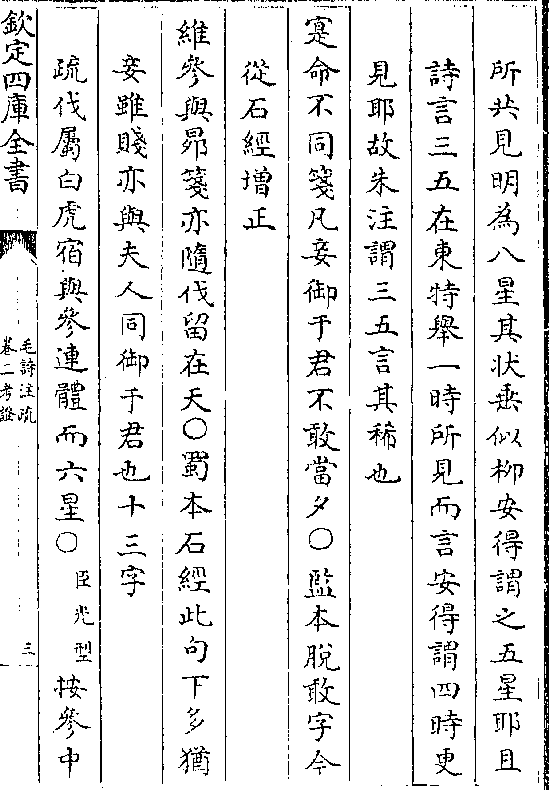 所共見明為八星其狀垂似柳安得謂之五星耶且
詩言三五在東特舉一時所見而言安得謂四時更
見耶故朱注謂三五言其稀也
寔命不同箋凡妾御于君不敢當夕〇監本脫敢字今
從石經增正
維參與昴箋亦隨伐留在天〇蜀本石經此句下多猶
妾雖賤亦與夫人同御于君也十三字
疏伐屬白虎宿與參連體而六星〇臣光型按參中
欽定四庫全書
毛詩注疏
卷二考證
三